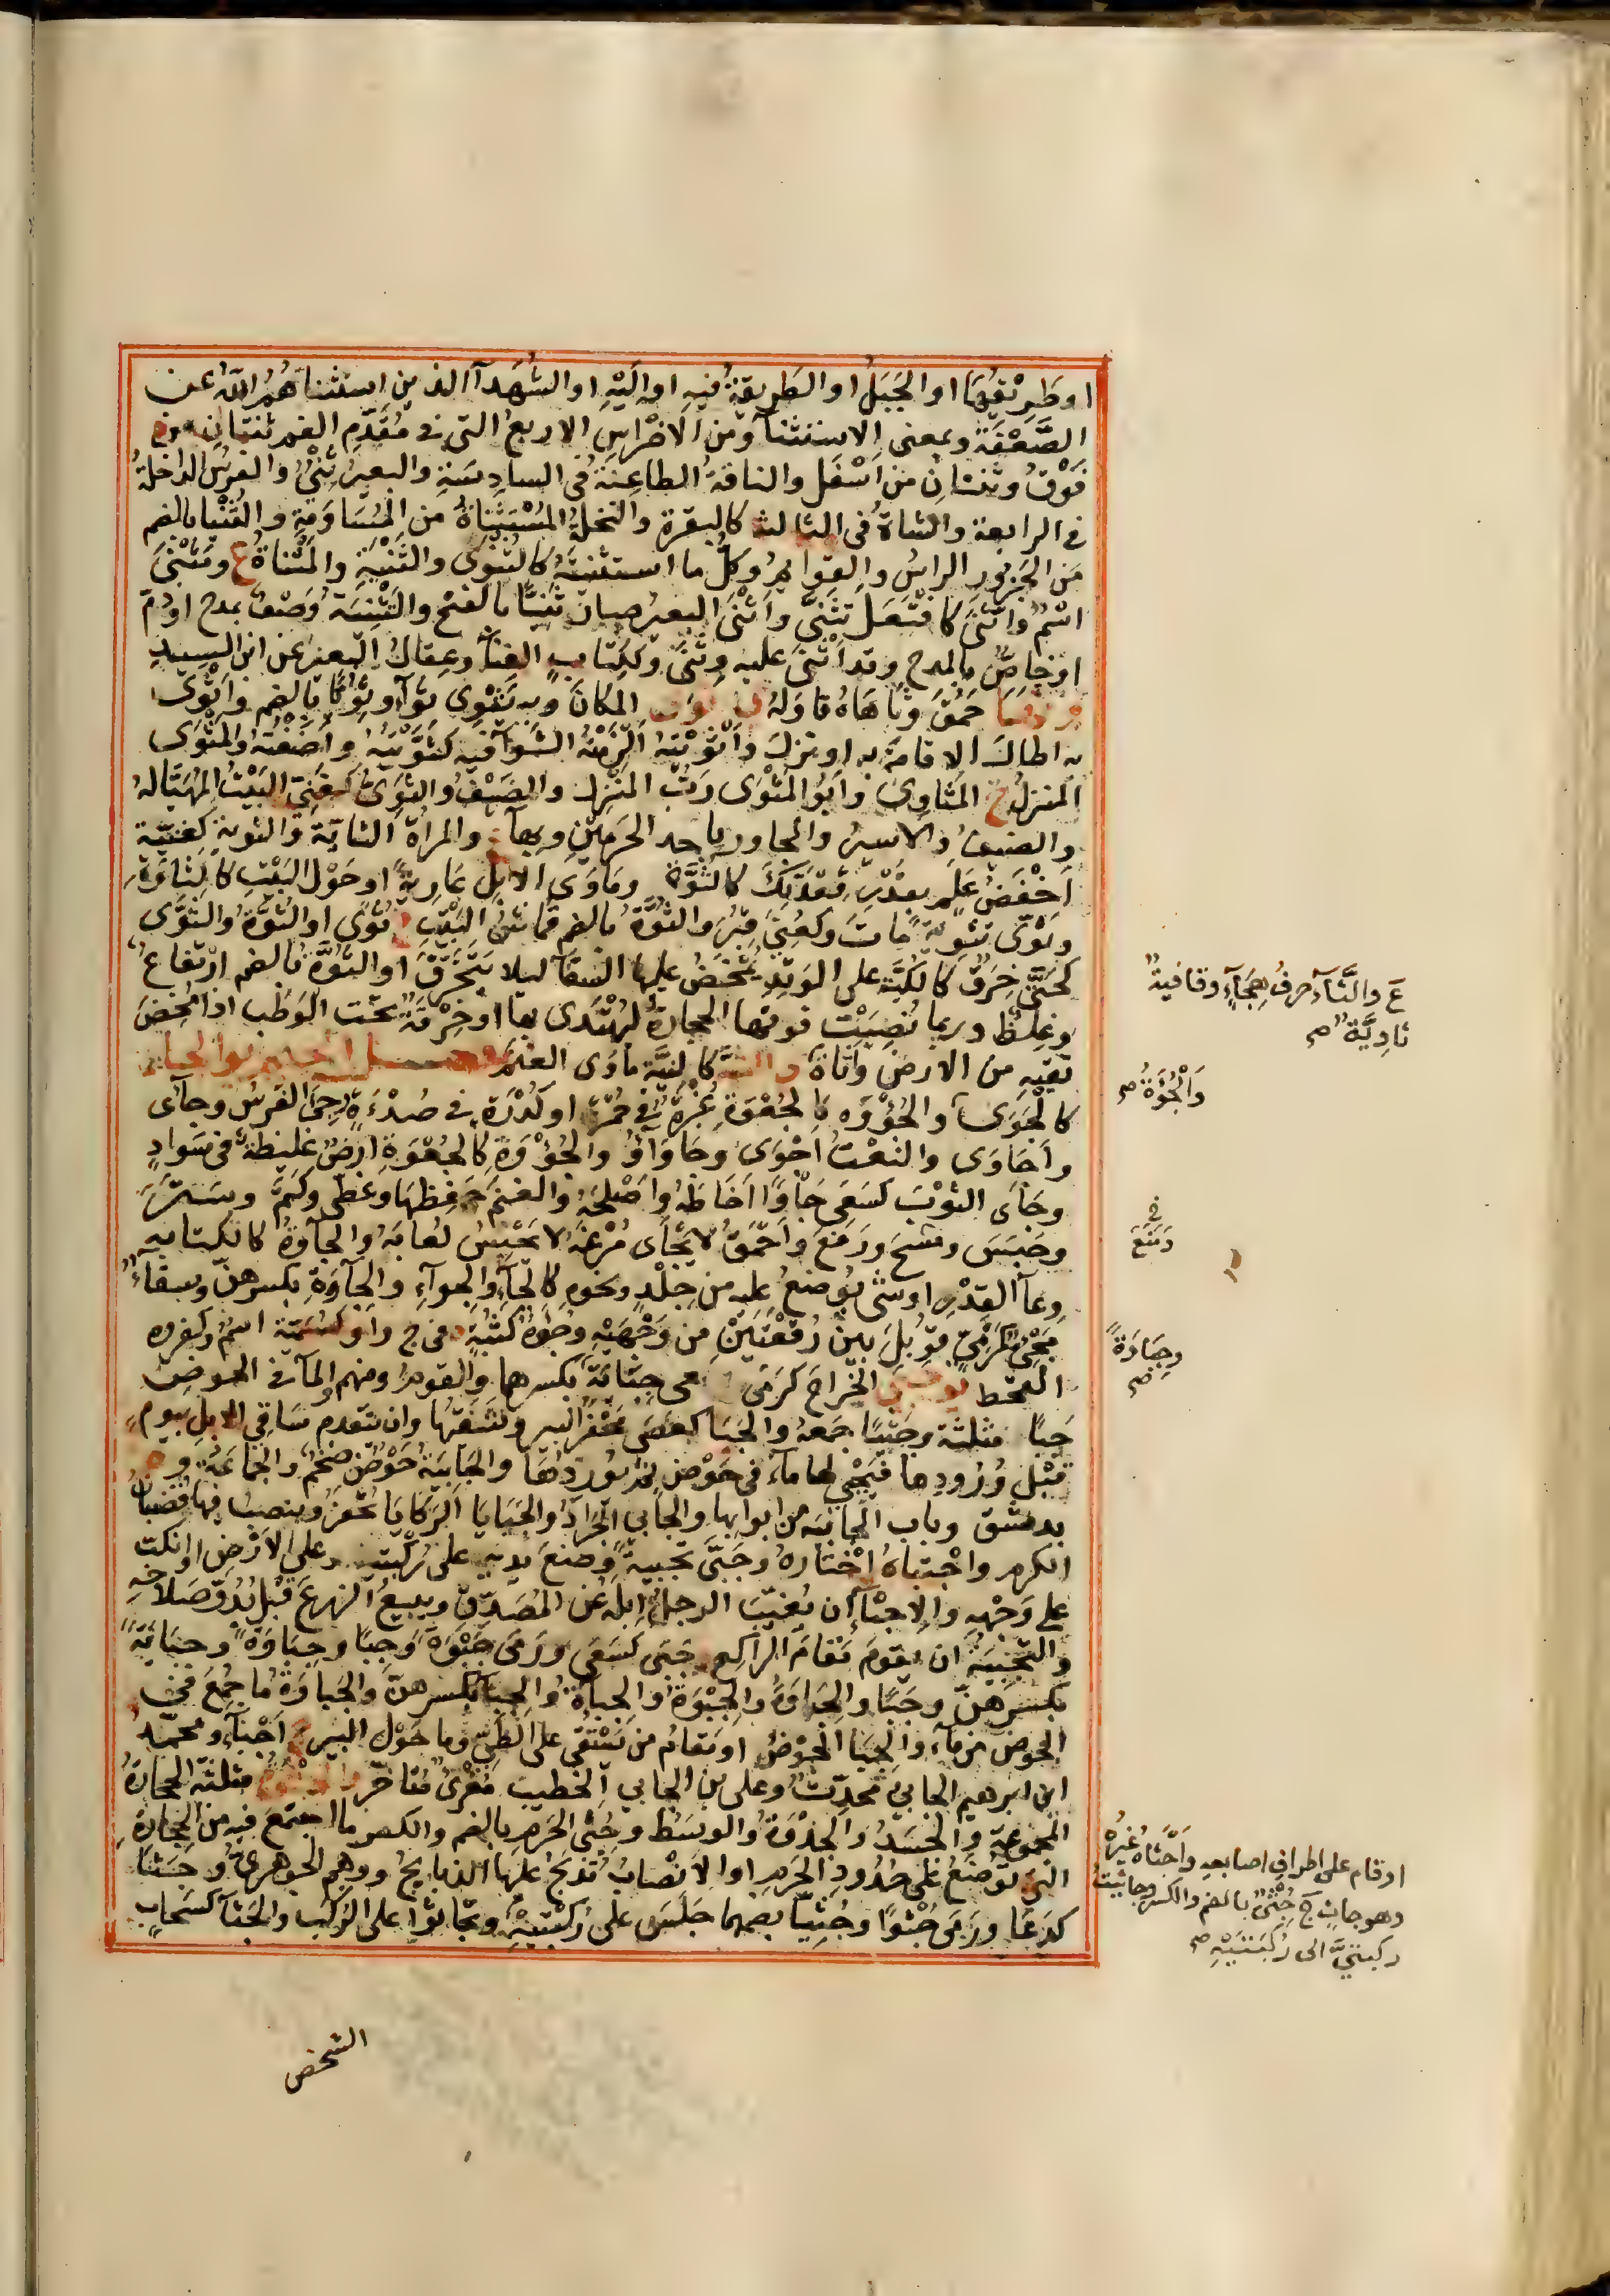 او طَرِيْقُهَا او الجَبَلُ او الطَرِيقَةُ فيهِ او اِلَيْهِ او الشُهَدَآ الذين استثناهُمُ اللّٰهُ عن
الصَّعْقَةِ وبمعنى الاستثنآ ومن الاَضْرَاسِ الاربعُ التى فى مُقَدَّمِ الفم ثنتانِ من
فَوْقُ وثنتانِ من اَسْفَل والناقةُ الطاعِنةُ فى السادِسَةِ والبعيرُ ثَنِىٌّ والفرسُ الداخلةُ
فى الرابعة والشاةُ فى الثالثة كالبقرة والنخلةُ المُسْتَثْنَاةُ من المُسَاوَمَةِ والثُنْيَا بالضم
مَن الجَزورِ الراسُ والقوايمُ وكلُّ ما استثنيتَهُ كالثَنْوَى والثُنْيَةِ والمَثْناةُ ع ومَثْنَى
اسْمٌ واثَّنَى كافْتَعَلَ تَثَنَّى واَثْنَى البعيرُ صار ثَنِيًّا بالفتح والتَثْنِيَةُ وَصْفٌ بمدح او ذمّ
او خاصٌّ بالمدح وقد اَثْنَى عليه وثَنَّى وككِتَابٍ الفِنآ وعِقالُ البعير عن ابن السِيدِ
حَمُقَ وثَاهَاهُ قاوَلهُ المكانَ وبه يَثْوِى ثَوَآءً وثُوِيًّا بالضم واَثْوَى
به اطال الاقامةَ به او نزل واَثْوَيْتهُ اَلْزَمْتُهُ الثَوَآ فيه كثَوَّيْتُهُ واَضَفْتُهُ والمَثْوَى
المنزلُ ج المَثَاوِى واَبُو المَثْوَى رَبُّ المَنْزِل والضَيْفُ والثَوِىُّ كغَنِىٍّ البَيْتُ المُهَيَّا لهُ
والضيفُ والاسيرُ والمجاور باحد الحَرَمَيْنِ وبهآء المراةُ والثايَةُ والثَويةُ كغَنِيَّة
اَخْفَضُ عَلَمٍ بقَدْرِ قِعْدَتِكَ كالثُوَّةِ ومَاوَى الابل عَازِبةً او حَوْل البَيْتِ كالثاوَةِ
وثَوَّى تَثْوِيةً مات وكعُنِىَ قُبِرَ والثُوَّةُ بالضم قُمَاشُ البَيْتِ ج ثُوًى او الثُوَّةُ والثُوَىُّ
كحُنَّى خِرَقٌ كالكُبَّة على الوَتِدِ يُمْخَضُ عليها السقآ لئلا يَتَخَرَّقَ او الثُوَّةُ بالضم ارْتفَاعٌ
وغِلَظٌ وربما نُصِبَتْ فوقها الحجارةُ لِيُهْتَدى بها او خِرْقَةٌ تحت الوَطْبِ اذا مُخِضَ
تقيهِ من الارض وثَاةُ والثَّيَّةُ كالنيَّة مَاوَى الغنم فصل الجيم
كالجَوَى والجُؤْوَه كالجُعْوَةِ غُبْرَةٌ فى حُمْرَة او كُدْرَةٌ فى صُدْءَةٍ جَئِىَ الفرسُ وجآى
واجَاوَى والنعْتُ اجْوَى وجَاوَاءُ والجُؤْوَةُ كالجُعْوَةِ ارضٌ غليظةٌ فى سَوادٍ
وجَأَى الثوْبَ كسَعَى جَأْوًا خَاطَهُ واَصْلَحَهُ والغنمَ حفِظهَا وغطى وكَتَمَ وسَتَرَ
وحَبَسَ ومَسَحَ ورَقَعَ واَحْمَقُ لا يَجْأى مَرْغَهُ لا يَحْبِسُ لُعابَهُ والجأوَةُ كالكتابةِ
وعآ القِدْرِ او شَى يُوضعُ عليه من جِلْدٍ ونحوهِ كالجآءِ والجِوآءِ والجِيآوَةِ بكسرهنّ وسِقآءٌ
مَجْئِىٌّ كمَرْمِىٍّ قُوبِلَ بين رُقعَتَيْنِ من وَجْهَيْهِ وجُؤَةُ كثُبَةٍ ج وجاوَةُ كسُمَيَّة اسْمٌ وكفروه
القحط الخراجَ كرَمَى وسعى جِبَايَةً بكسرهما والقومَ ومنهم والمآ فى الحوض
جَبًا مثلثة وجَبْيًا جَمَعَهُ والجَبَا كعَصَى مَحْفَرُ البير وشَفَتُهَا وان يتقدم سَاقِى الابل بيوم
قبل وُرُودِها فيَجْبِى لها مآءً فى حَوْضٍ ثمّ يُورِدُهَا والجَابِيَةُ حَوْضٌ ضَخْمٌ والجَماعَةُ وة
بدمشق وباب الجابية من ابوابها والجابى الجَرَادُ والجَبَايَا الرَكَايَا تُحْفَرُ ويُنصَبُ فيها قُضْبَانُ
الكرم واجْتَباهُ اخْتارهُ وجَبَّى تجبيةً وضع يديه على رُكْبَتيه وعلى الارض او انكبّ
على وَجْههِ والاِجْبآءُ ان يُغَيِّبَ الرجلُ اِبِلَهُ عن المُصَدِّق وبيعُ الزرعَ قَبْل بُدُوِّ صَلاحهِ
والتَجْبِيَةُ ان يقومَ مَقامَ الراكع جَبَى كَسَعَى ورَمَى جَبْوَةً وجِبًا وجِبَاوَةً وجِبَايَةً
بكسرهنّ وجَبًا والجَبَاوَةُ والجِبْوَةُ والجِباةُ والجِبَا بكسرهنّ والجَبَاوَةُ مَا جُمِعَ فى
الحوض من مآءٍ والجَبَا الحَوْضُ او مَقامُ من يَسْتَقِى على الطىّ وما حَوْل البير ج اَجْبآءٌ ومحمّد
ابن ابرهيم الجابى مُحدِّثٌ وعلى بن الجابى الخطيب مُقْرِىٌ مُتاخر والجثوةُ مثلثة الحجارةُ
المجموعةُ والجَسَدُ والجُذْوَةُ والوسَطُ وجُثَى الحرم بالضم والكسر ما اجتمَعَ فيه من الحِجَارَةِ
التى تُوضَعُ على حُدُودِ الحرم او الاَنْصابُ تُذْبَحُ عليها الذبايحُ ووهم الجوهرىّ وجَثَا
كدَعَا ورَمَى جُثُوًّا وجُثِيًّا بضمهما جَلَسَ على رُكْبَتَيْهِ وتجَاثَوْا على الرُكَبِ والجَثآءُ كسَحَابٍ
ع والثَّآء حرفُ هِجَآءٍ وقافيةٌ
ثاوِيَّةٌ صح
وَالْجُوَةُ صح
فى
رَقَعَ
وجِبَاوَةً
صح
او قام على اطراف اصابعه وَاَجْثَاهُ غيرُهُ
وهو جاثٍ ج جُثِىٌّ بالضم والكسر وجاثيتُ
ركبتىَّ الى رُكبَتَيْهِ صح
الشخص